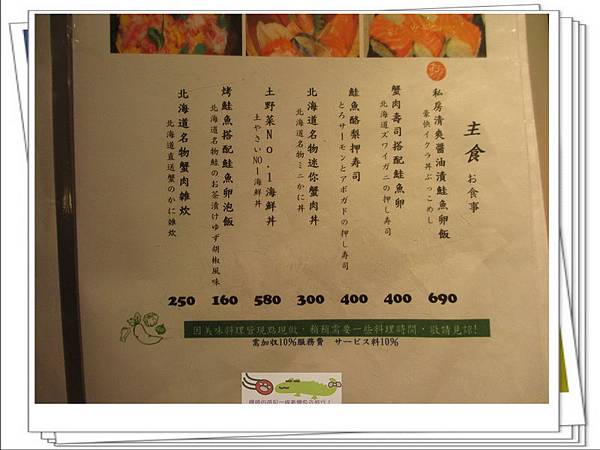 主食 お食事
私房清爽醬油漬鮭魚卵飯
豪快イクラ丼ぶっこめし
690
蟹肉壽司搭配鮭魚卵
北海道ズワイガニの押し寿司
400
鮭魚酪梨押壽司
とろサーモンとアボガドの押し寿司
400
北海道名物迷你蟹肉丼
北海道名物ミニかに丼
300
土野菜No.1海鮮丼
土やさいNO1海鮮丼
580
烤鮭魚搭配鮭魚卵泡飯
北海道名物鮭のお茶漬けゆず胡椒風味
160
北海道名物蟹肉雜炊
北海道直送蟹のかに雑炊
250
因美味料理皆現點現做，稍稍需要一些料理時間，敬請見諒!
需加收10%服務費 サービス料10%